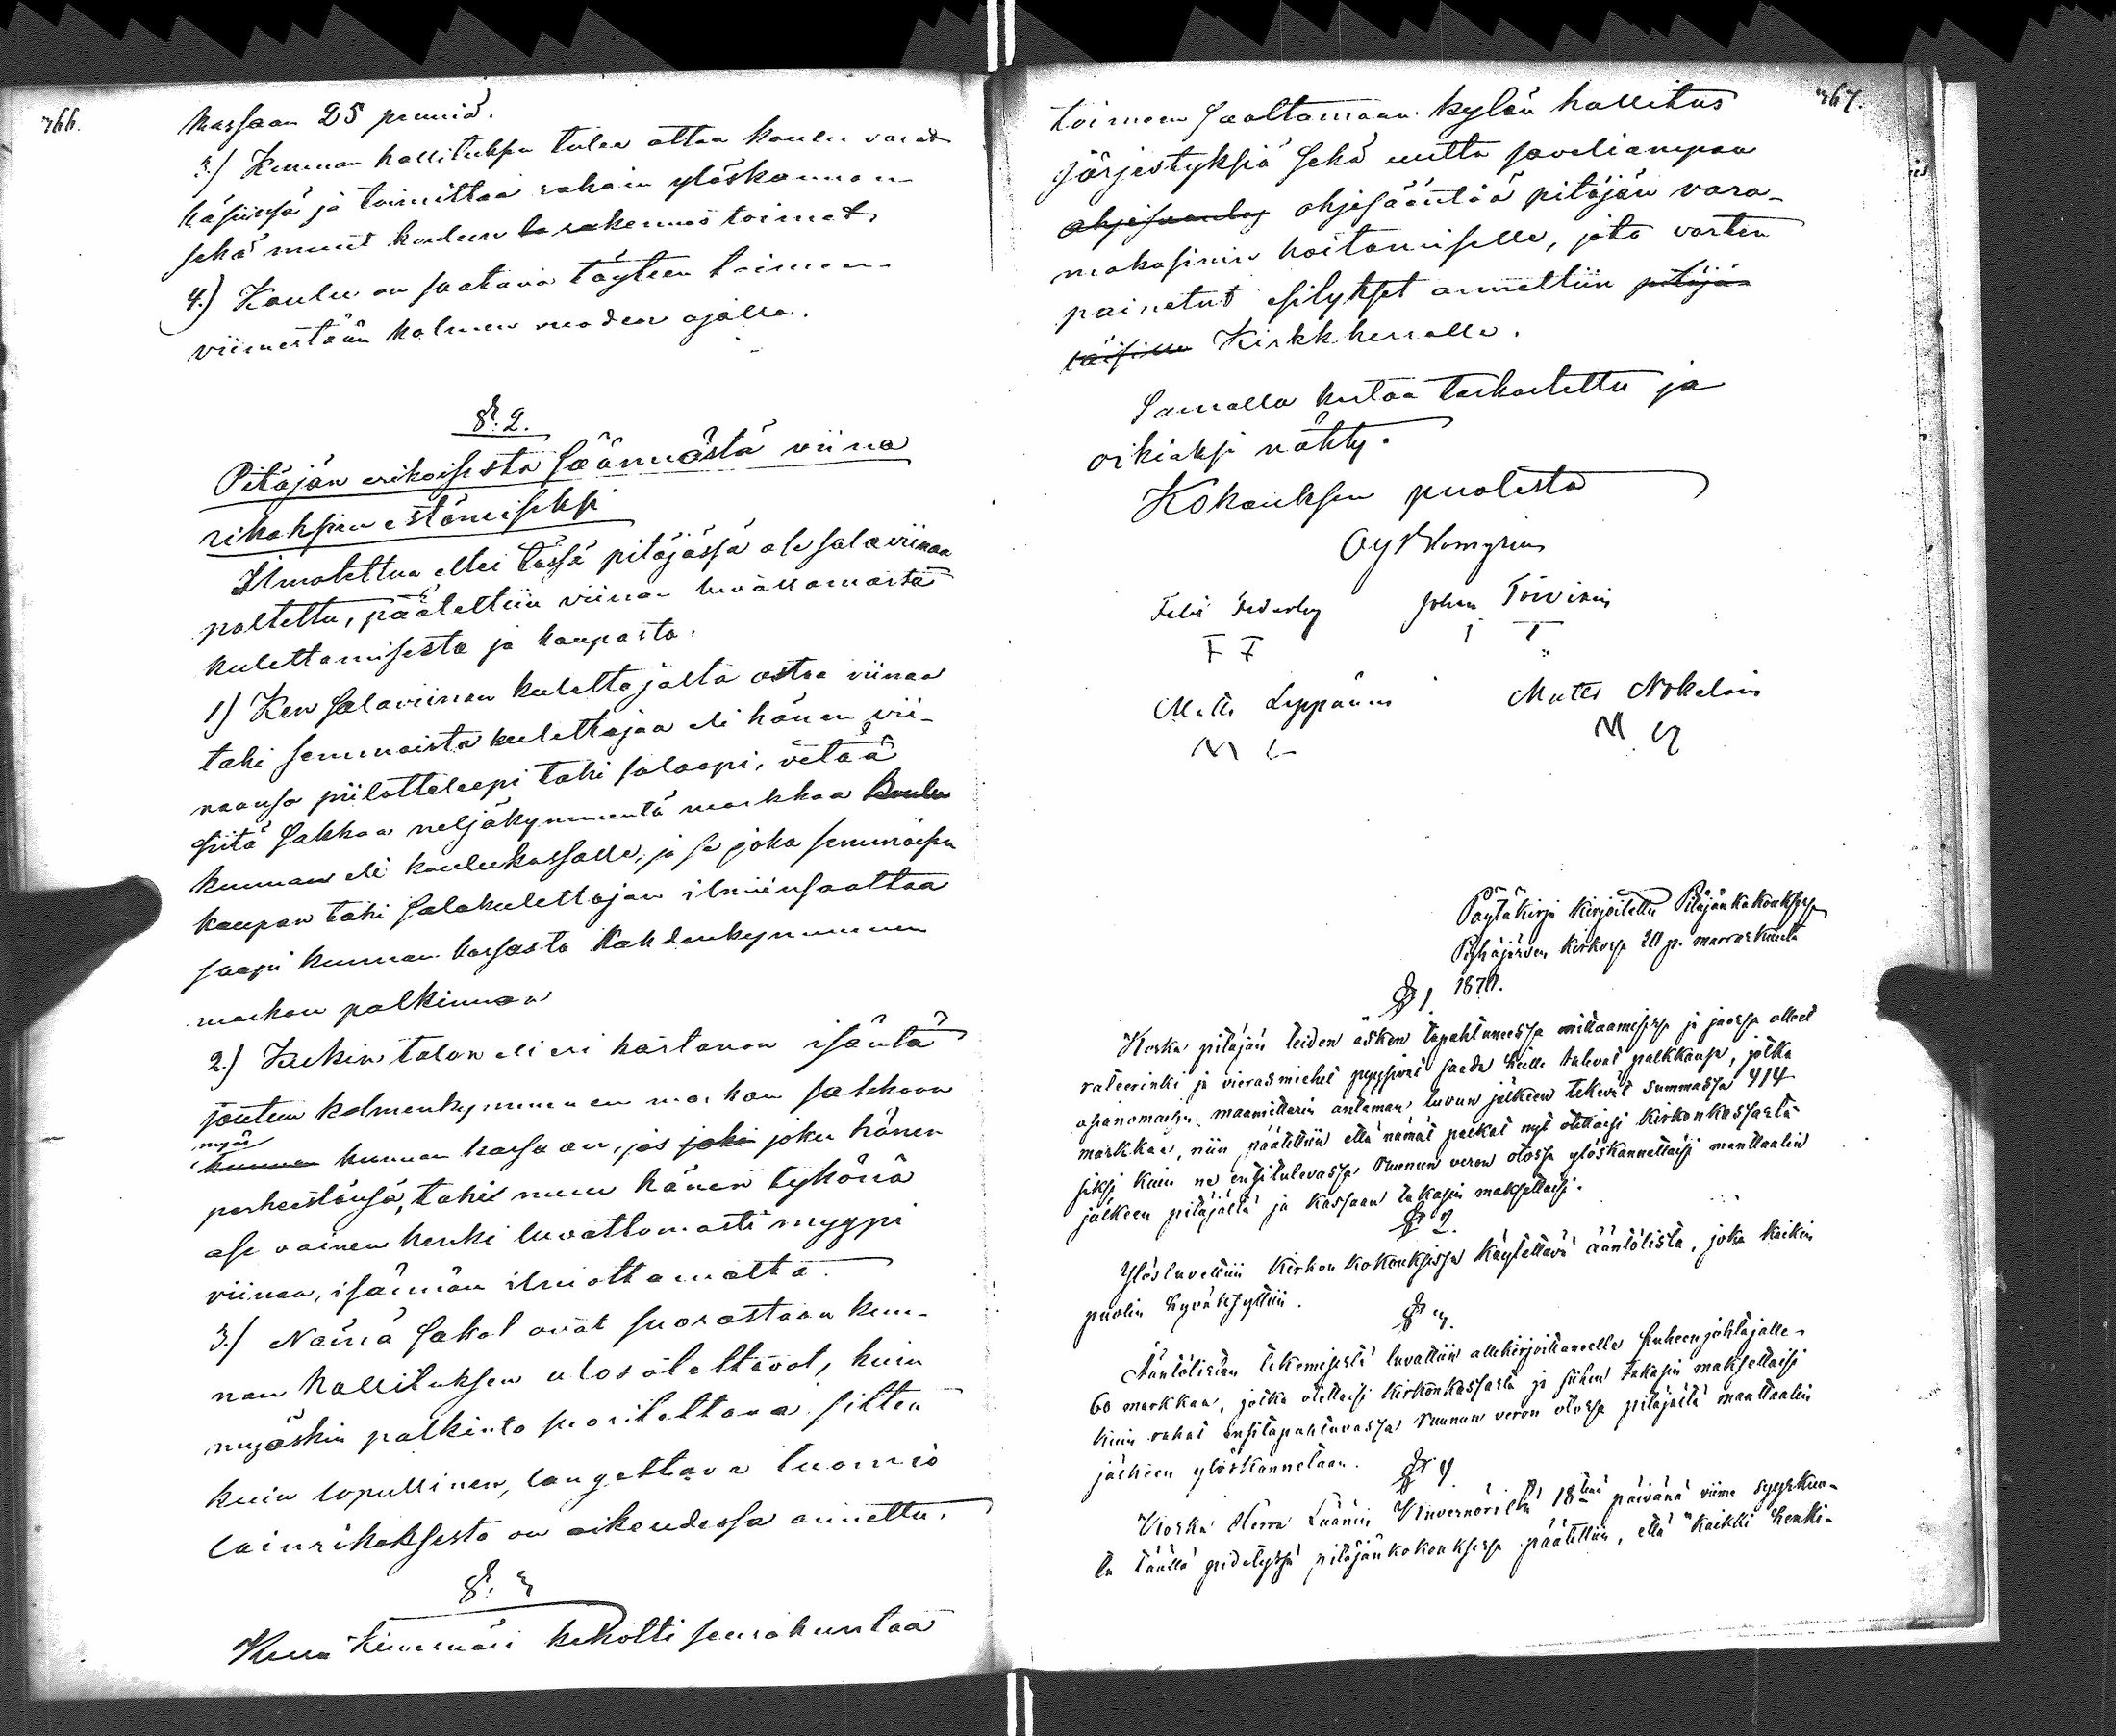 366.
kassaan 25 penniä.
3.) Kunnan hallituksen tulee ottaa koulun varat
käsiinsä ja toimittaa rahain ylöskannon
sekä muut koulun rakennus toimet
4.) Koulu on saatava täyteen toimeen
viimestään kolmen vuoden ajalla.
§. 2.
Pitäjän erikoisesta säännöstä viina
rikoksien estämiseksi
Ilmotettua ettei tässä pitäjässä ole salaviinaa
poltettu, päätettiin viinan luvattomasta
kulettamisesta ja kaupasta.
1) Ken salaviinan kulettajalta ostaa viinaa
tahi semmoista kulettajaa eli hänen vii-
naansa piilotteleepi tahi salaapi, vetää
siitä sakkoa neljäkymmentä markkaa
kunnan eli koulukassalle, ja se joka semmoisen
kaupan tahi salakulettajan ilmiinsaattaa
saapi kunnan kassasta kahdenkymmenen
markan palkinnon
2.) Kukin talon eli eri kartanon isäntä
joutuu kolmenkymmenen markan sakkoon
myös
kunnan kunnan kassaan, jos joki joku hänen
perheestänsä, tahi muu hänen tykönä
asevainen henki luvattomasti myypi
viinaa, isännän ilmottamatta.
3.) Nämä sakot ovat suorastaan kun-
nan hallituksen ulosotettavat, kuin
myöskin palkinto suoritettava sitten
kuin lopullinen, langettava tuomio
lainrikoksesta on oikeudessa annettu.
§. 3
Herra Kuvernööri kehotti seurakuntaa
367.
toimeen saattamaan kylän hallitus
järjestyksiä sekä uutta soveliampaa
ohjesääntöä pitäjän vara-
makasinin hoitamiselle, jota varten
painetut esitykset annettiin pitäjä-
läisille Kirkkherralle.
Samalla kertaa tarkastettu ja
oikiaksi nähty.
Kokouksen puolesta
F F
Matti Leppänen Matti Nokelain
M L M N
Pöytäkirja kirjoitettu Pitäjänkokouksessa
Pyhäjärven kirkossa 20 p. marraskuuta
§ 1. 1870.
Koska pitäjän teiden äsken tapahtuneessa mittaamisessa ja jaossa olleet
rateerinki ja vierasmiehet pyysivät saada heille tulevat palkkansa, jotka
asianomaisen maamittarin antaman luvun jälkeen tekevät summassa 414
markkaa, niin päätettiin että nämät palkat nyt otettaisi kirkonkassasta
siksi kuin ne ensitulevassa kunnan veron otossa ylöskannettaisi manttaalin
jälkeen pitäjältä ja kassaan takasin maksettaisi.
§ 2.
Ylösluvettiin kirkon kokouksissa käytettävä ääntölista, joka kaikin
puolin hyväksyttiin.
§ 3.
Ääntölistan tekemisestä luvattiin allekirjoittaneelle puheenjohtajalle
60 markkaa, jotka otettaisi kirkonkassasta ja siihen takasin maksettaisi
kuin rahat ensitapahtuvassa kunnan veron otossa pitäjältä manttaalin
jälkeen ylöskannetaan.
§ 4.
Koska Herra Läänin Kuvernöriltä 18 päivänä viime syyskuu-
ta täällä pidetyssä pitäjänkokouksessa päätettiin, että "kaikki henki-